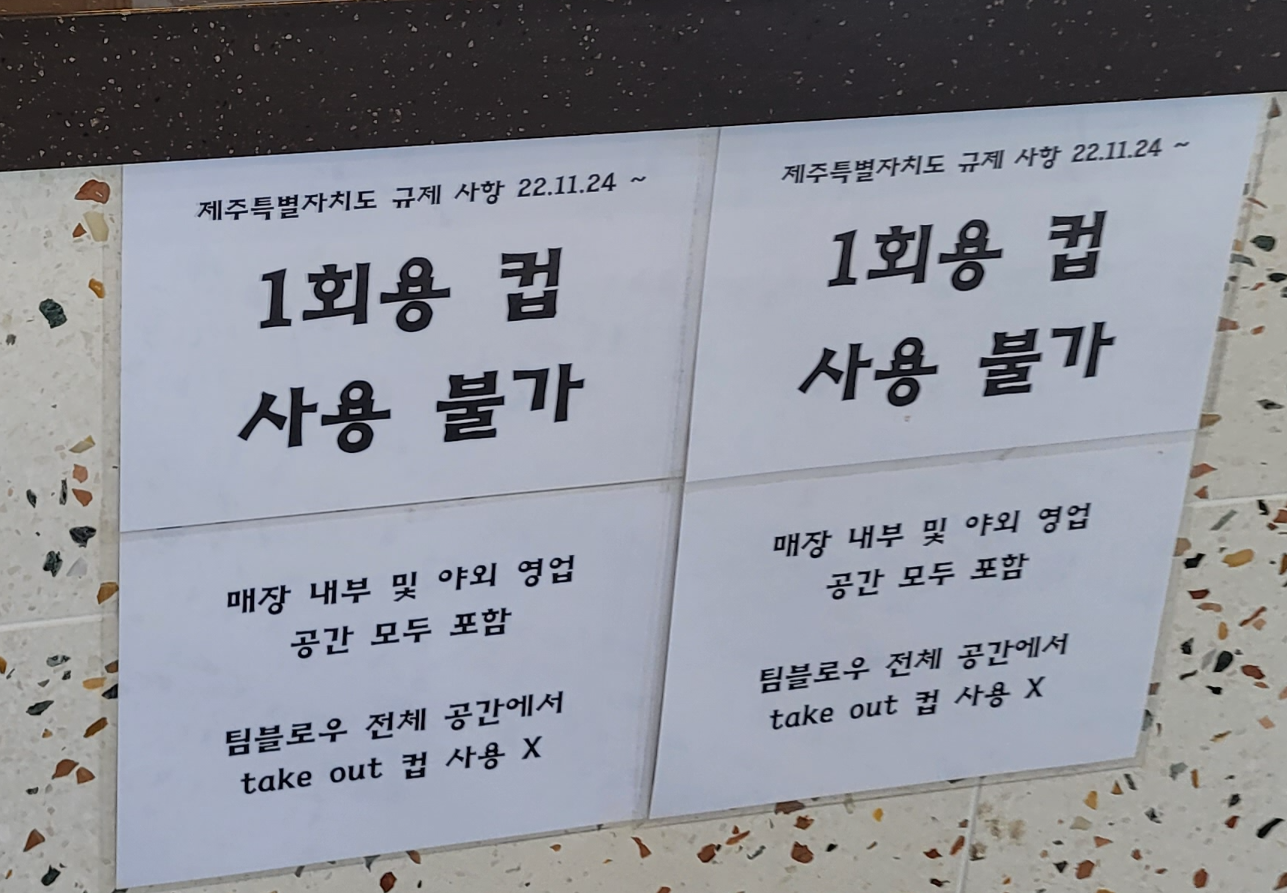 제주특별자치도 규제 사항 22.11.24 ~
1회용 컵
사용 불가
매장 내부 및 야외 영업
공간 모두 포함
팀블로우 전체 공간에서
take out 컵 사용 X
제주특별자치도 규제 사항 22.11.24 ~
1회용 컵
사용 불가
매장 내부 및 야외 영업
공간 모두 포함
팀블로우 전체 공간에서
take out 컵 사용 X